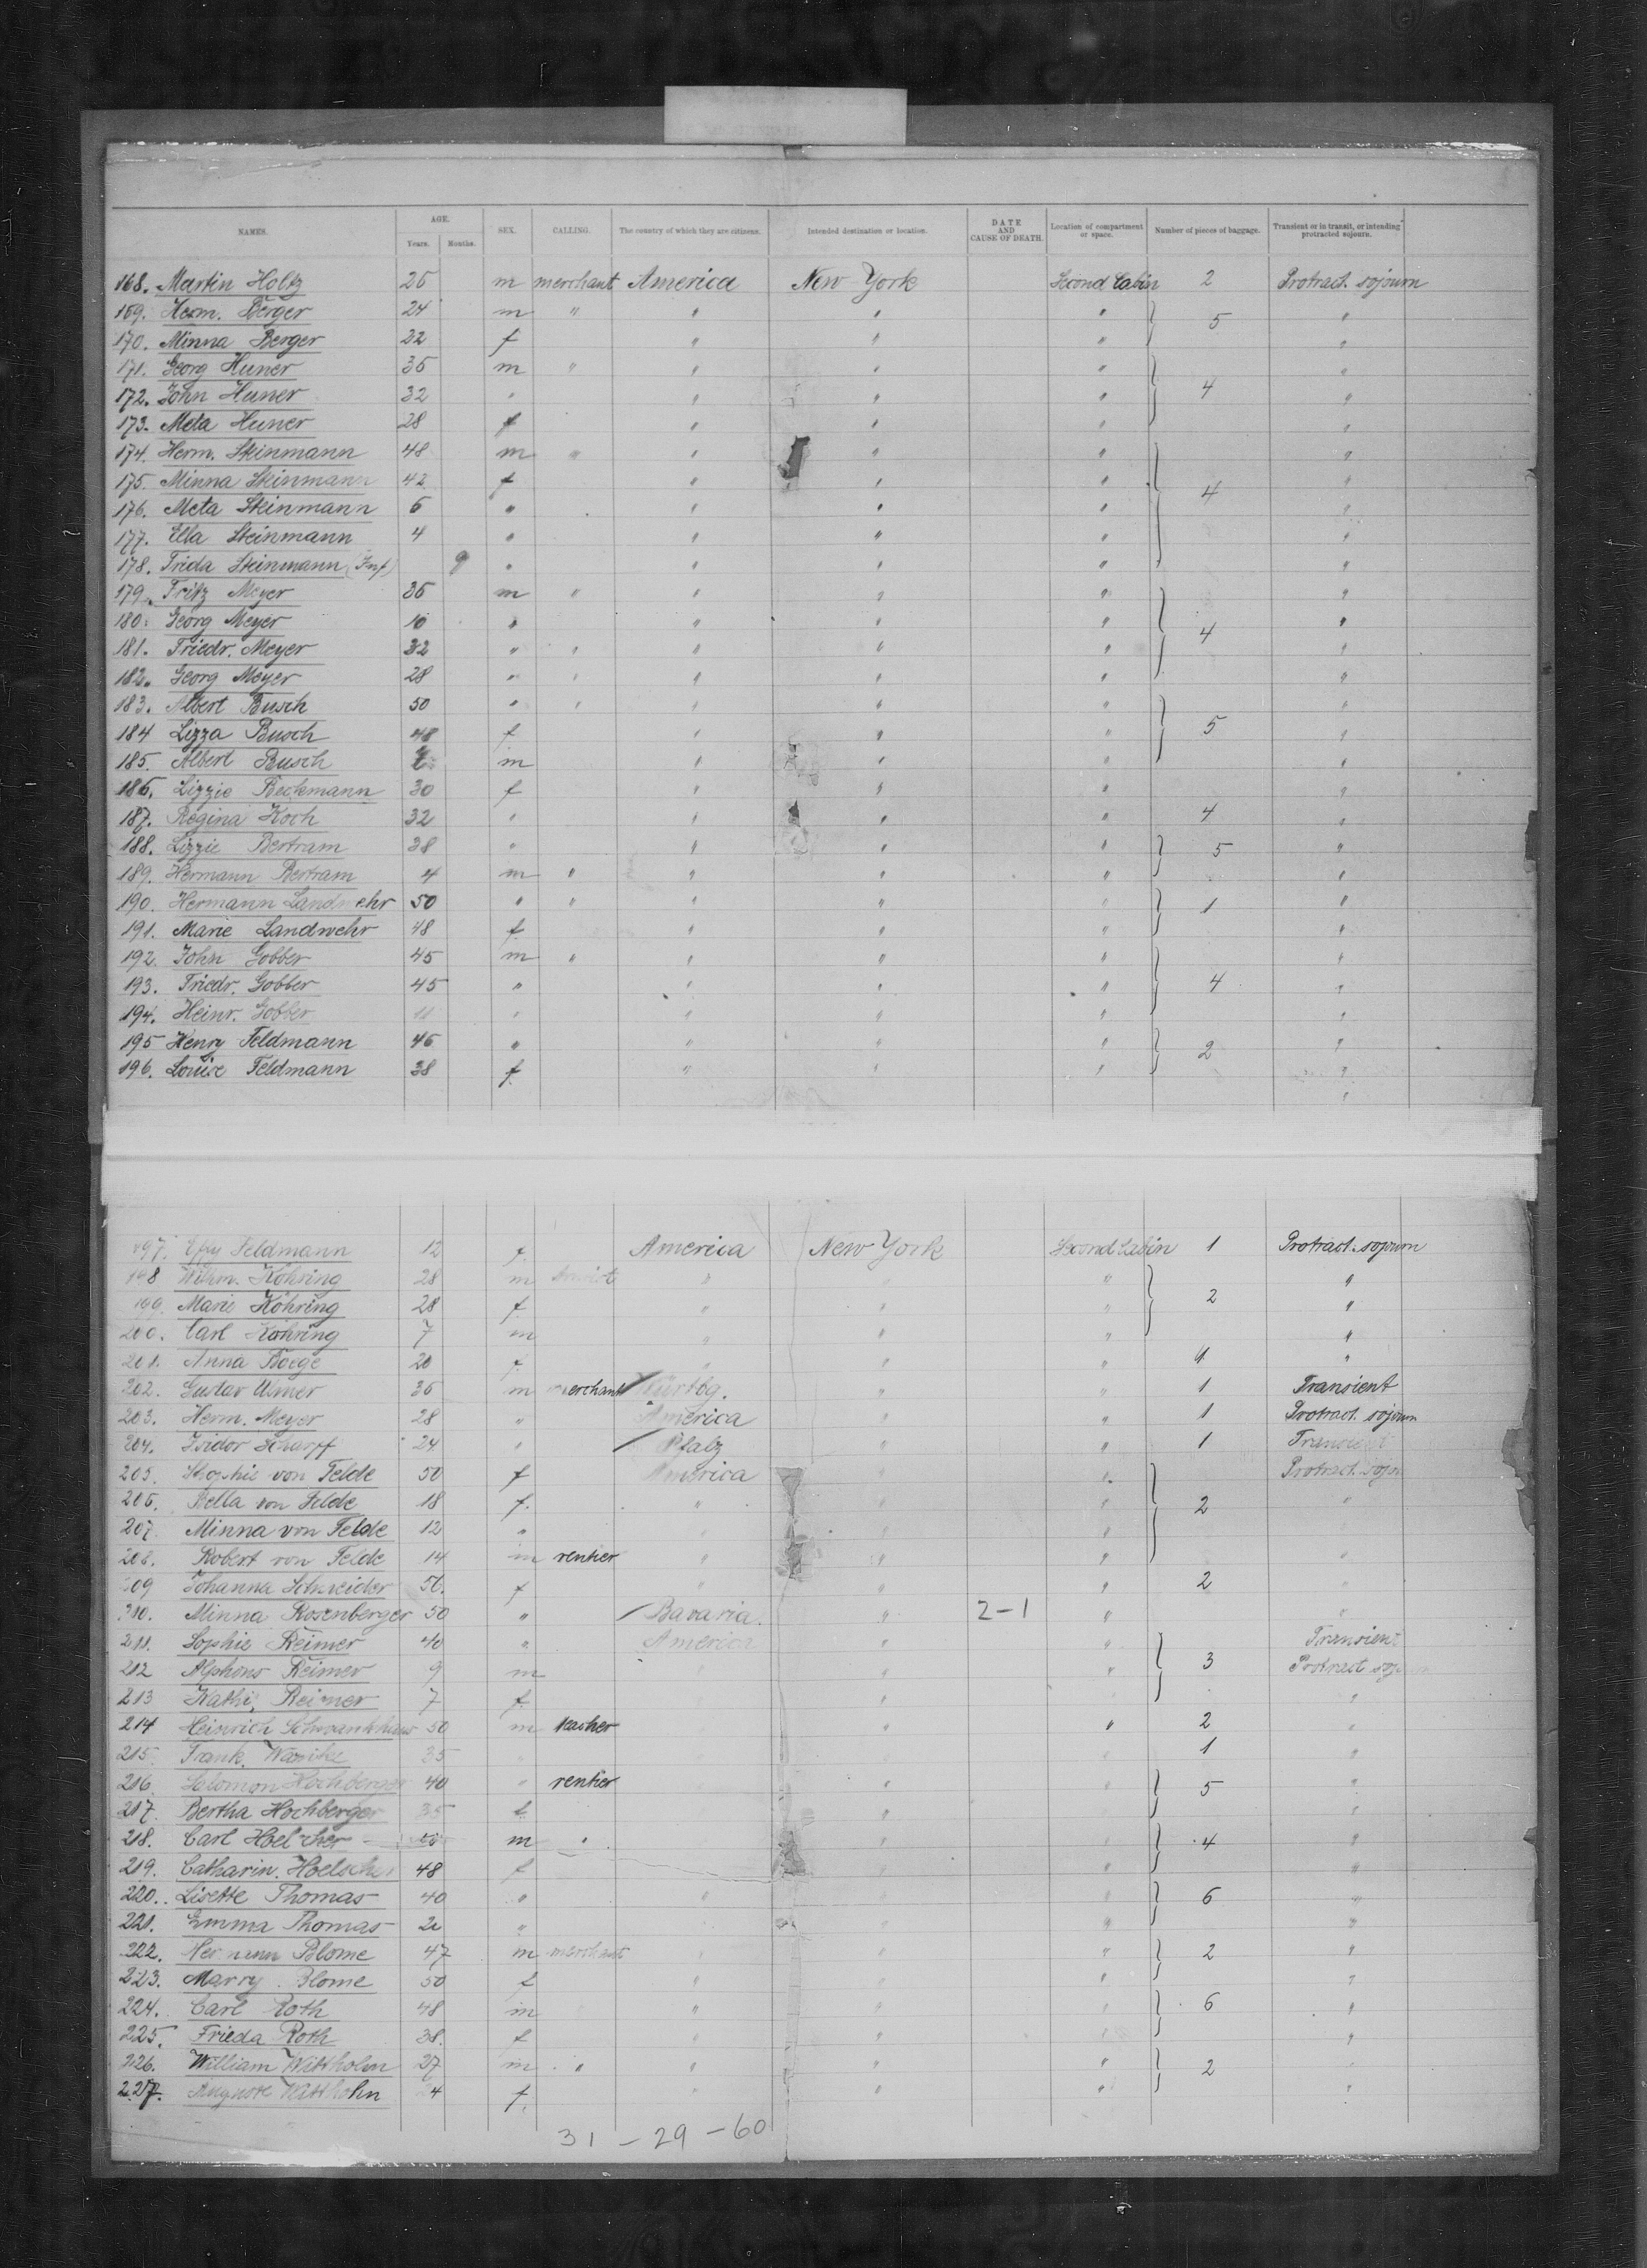 NAMES. AGE. Years. Months. SEX. CALLING. The country of which they are citizens. Intended destination or location. DATE AND CAUSE OF DEATH. Location of compartment or space. Number of pieces of baggage. Transient or in transit, or intending protracted sojourn.
168. Martin Holtz 25 m merchant America New York Second Cabin 2 Protract. sojourn
169. Herm. Berger 24 m " " " " 5 "
170. Minna Berger 22 f " " " "
171. Georg Huner 35 m " " " " "
172. John Huner 32 " " " " 4 "
173. Meta Huner 28 f " " " "
174. Herm. Steinmann 48 m " " " " "
175. Minna Steinmann 42 f " " " 4 "
176. Meta Steinmann 6 " " " " "
177. Ella Steinmann 4 " " " " "
178. Frida Steinmann (Inf) 9 " " " " "
179. Fritz Meyer 36 m " " " " "
180. Georg Meyer 10 " " " " "
181. Friedr. Meyer 32 " " " " " 4 "
182. Georg Meyer 28 " " " " " "
183. Albert Busch 50 " " " " " "
184 Lizza Busch 48 f " " " 5 "
185. Albert Busch m " " " "
186. Lizzie Beckmann 30 f " " " "
187. Regina Koch 32 " " " " 4 "
188. Lizzie Bertram 38 " " " " 5 "
189. Hermann Bertram 4 m " " " " "
190. Hermann Landwehr 50 " " " " " 1 "
191. Marie Landwehr 48 f " " " "
192. John Gobber 45 m " " " " "
193. Friedr. Gobber 45 " " " " 4 "
194. Heinr. Gobber 11 " " " " "
195 Henry Feldmann 46 " " " " 2 "
196. Louise Feldmann 38 f. " " " "
"
197. Feldmann 12 f. America New York Second Cabin 1 Protract. sojourn
198 Wilhm. Köhring 28 m " " " "
199. Marie Köhring 28 f " " " 2 "
200. Carl Köhring 7 m " " " "
201. Anna Boege 20 f. " " " 4 "
202. Gustav Ulmer 36 m merchant Würtbg. " " 1 Transient
203. Herm. Meyer 28 " America " " 1 Protract. sojourn
204. Isidor Scharff 24 " Pfalz " " 1 Transient
205. Sophie von Felde 50 f America " " Protract. sojn
206. Bella von Felde 18 f. " " " 2 "
207. Minna von Felde 12 " " " "
208. Robert von Felde 14 m rentier " " " "
209 Johanna Schneider 56. f " " " 2 "
210. Minna Rosenberger 50 " Bavaria. " 2-1 " "
211. Sophie Reimer 40 " America " " Transient
212 Alphons Reimer 9 m " " " 3 Protract soj
213 Kathi Reimer 7 f. " "
214 Heinrich 50 m teacher " " 2 "
215. Frank 35 " 1 "
216. Salomon Hochberger 40 " rentier " " 5 "
217. Bertha Hochberger 35 f " "
218. Carl Hoelscher m " " " 4 "
219. Catharin. Hoelscher 48 f " " "
220. Lisette Thomas 40 " " " 6 "
221. Emma Thomas " " " "
222. Hermann Blome 47 m merchant " " " 2 "
223. Marry Blome 50 f " " " "
224. Carl Roth 48 m " " " 6 "
225. Frieda Roth 38. f " " " "
226. William Wittholm 27 m " " " " 2 "
227. 24 f. " " "
31 - 29 - 60